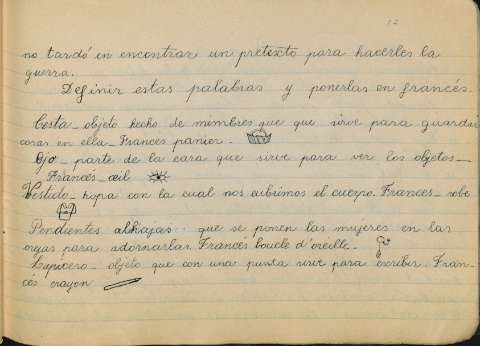 12
no tardó en encontrar un pretexto para hacerles la
guerra.
Definir estas palabras y ponerlas en francés.
Cesta - objeto hecho de mimbres que que sirve para guardar
cosas en ella - Francés panier.
Ojo - parte de la cara que sirve para ver los objetos -
Francés - œil
Vestido - hopa con la cual nos cubrimos el cuerpo. Francés - robe
Pendientes alhajas: que se ponen las mujeres en las
orejas para adornarlas. Francés boucle d'oreille -
Lapicero - objeto que con una punta sirve para escribir. Fran-
cés crayon